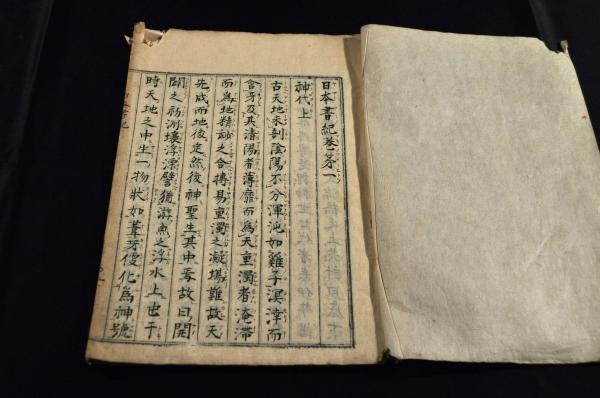 日本書紀卷第一
神代上
古天地未剖陰陽不分渾沌如雞子溟涬而
含牙及其清陽者薄靡而爲天重濁者淹滯
而爲地精妙之合摶易重濁之凝場難故天
先成而地後定然後神聖生其中焉故曰開
闢之初洲壤浮漂譬猶游魚之浮水上也于
時天地之中生一物狀如葦芽便化爲神號